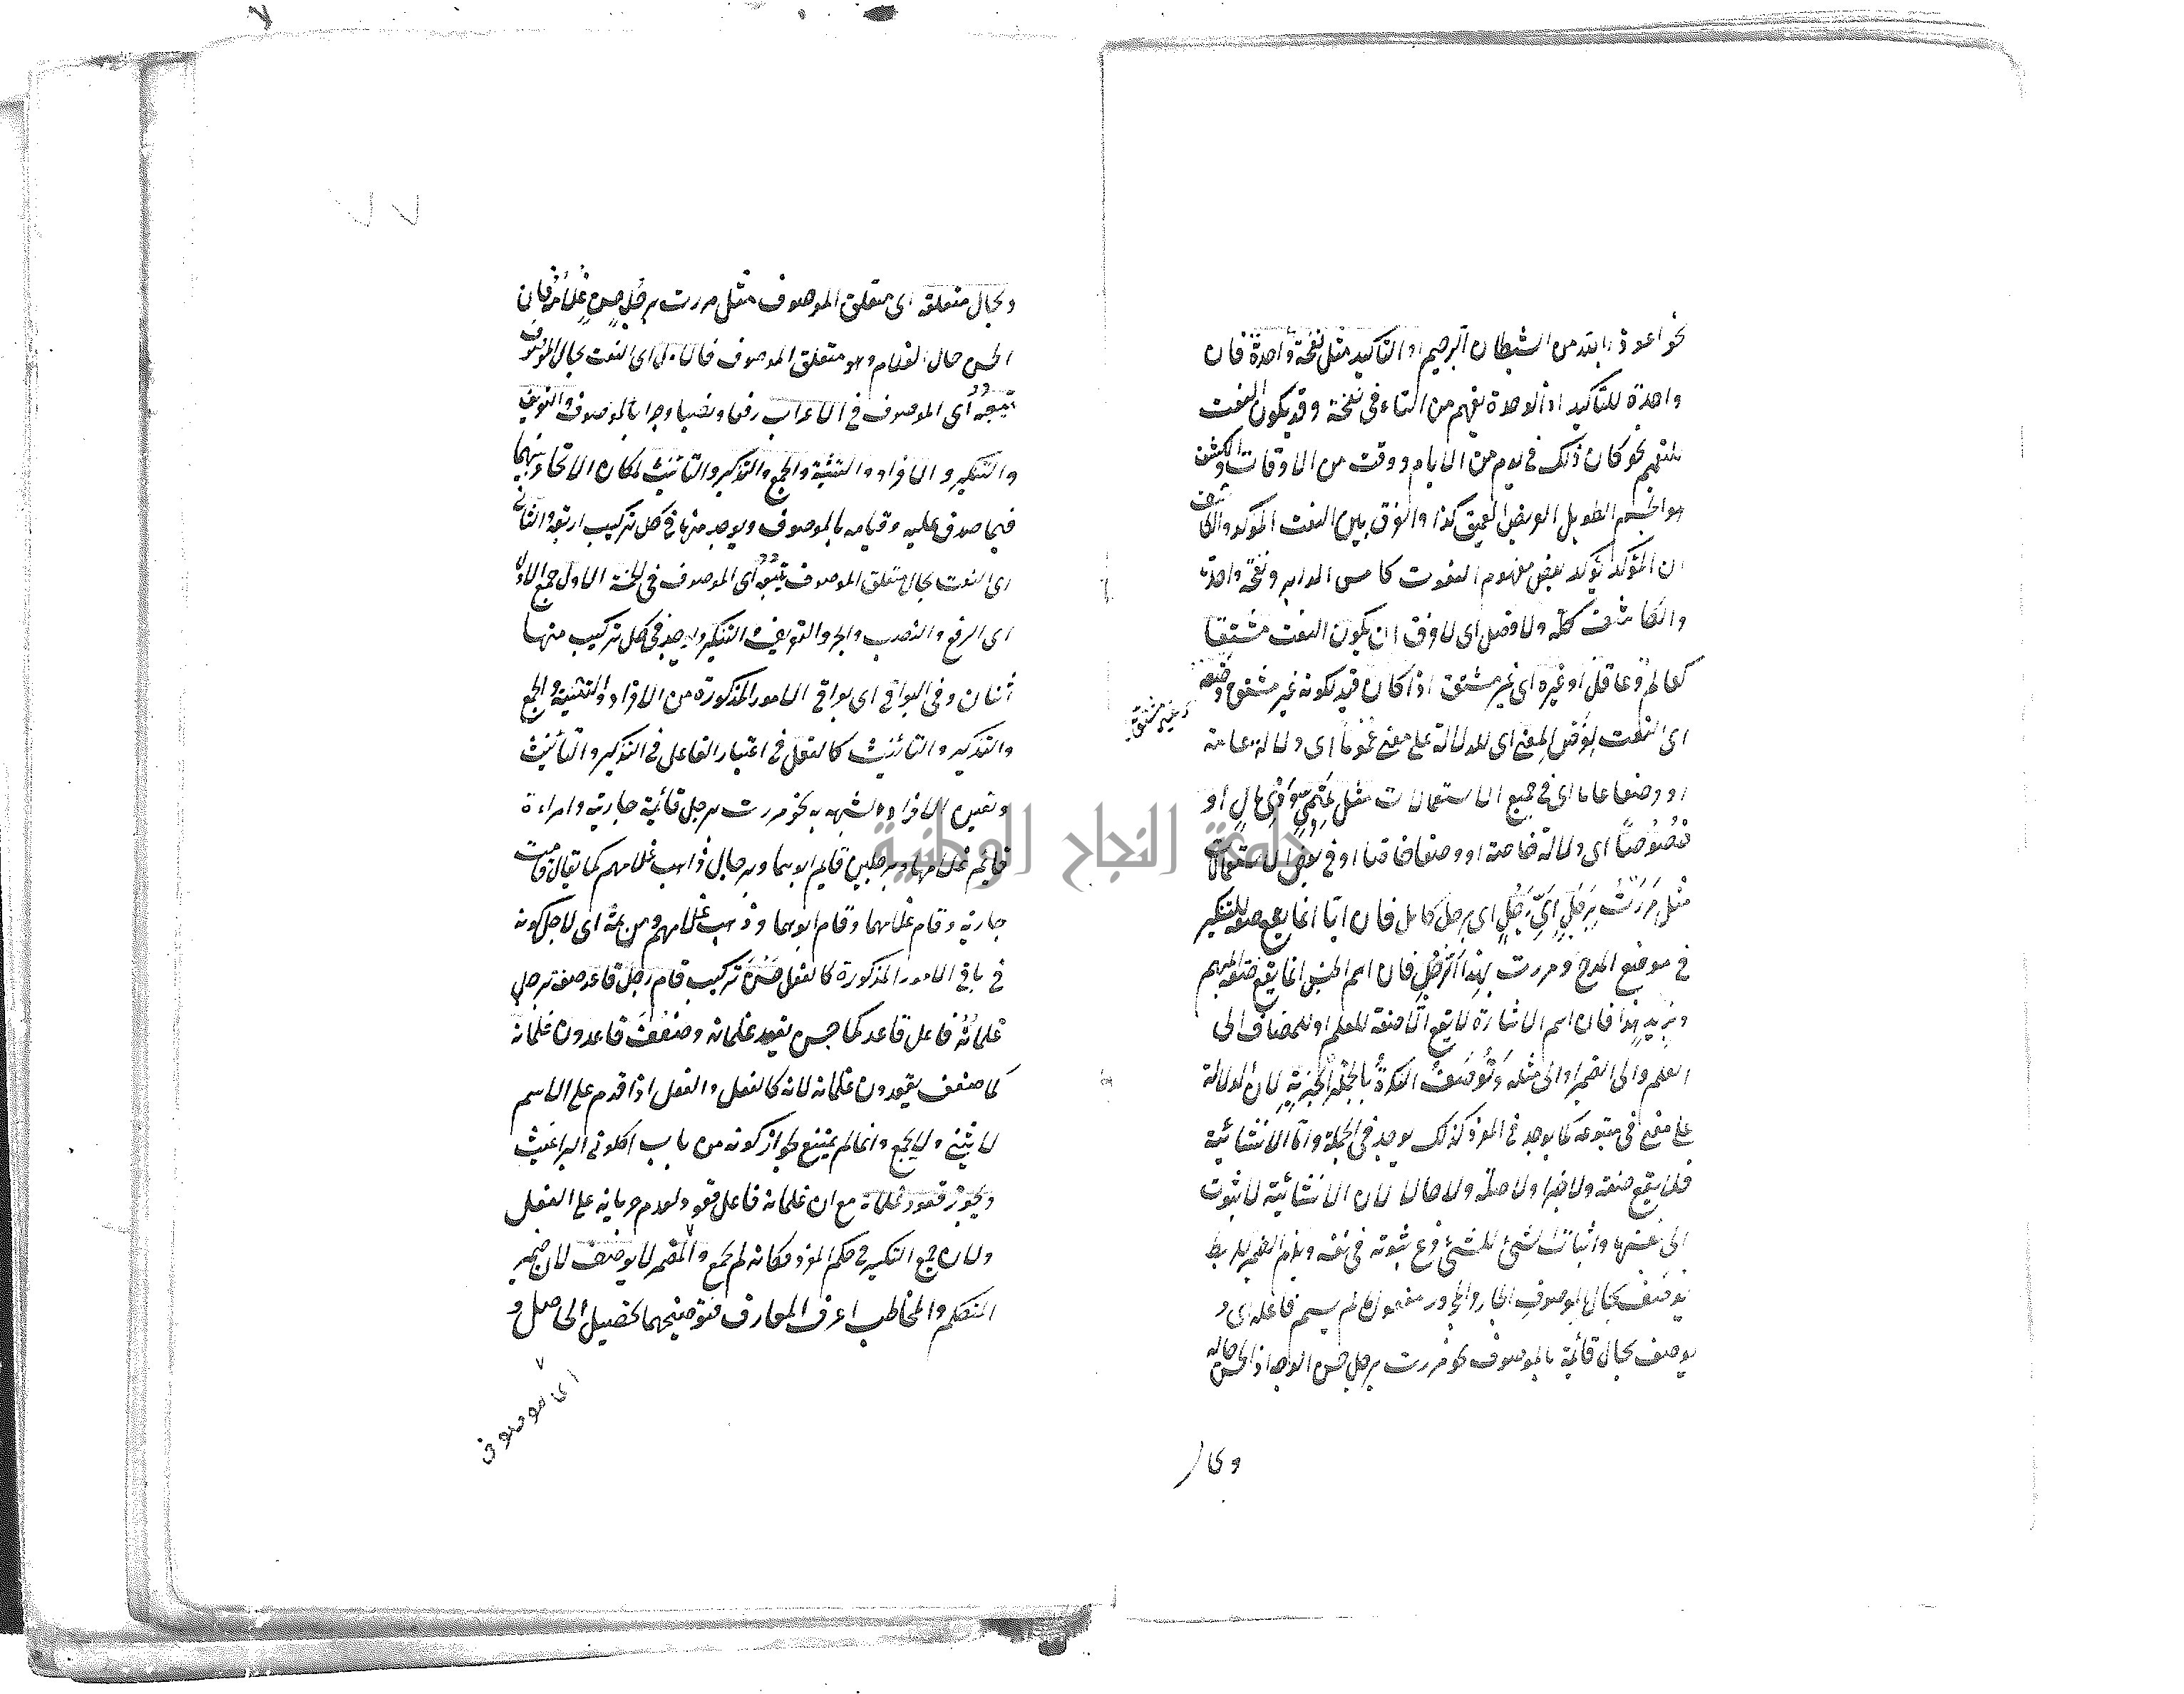 نحو اعوذ بالله من الشيطان الرجيم او التأكيد مثل نفخة واحدة فان
واحدة للتأكيد اذ الوحدة يفهم من التاء في نفخة وقد يكون النعت
للتعميم نحو كان ذلك في يوم من الايام ووقت من الاوقات وللكشف
نحو الجسم الطويل العريض العميق كذا والفرق بين النعت المؤكد والكاشف
ان المؤكد يؤكد بعض مفهوم المنعوت كامس الدابر ونفخة واحدة
والكاشف كله ولا فصل اى لا فرق ان يكون النعت مشتقا
كعالم وعاقل او غيره اى غير مشتق اذا كان قيد لكونه غير مشتق وضعه
غير مشتق
اى النعت لغرض المعنى اى للدلالة على معنى عموما اى دلالة عامة
او وضعا عاما اى في جميع الاستعمالات مثل تميمي وذي مال او
خصوصا اى دلالة خاصة او وضعا خاصا او في بعض الاستعمالات
مثل مررت برجل اي رجل اى برجل كامل فان ايا انما يقع صفة للنكير
في موضع المدح ومررت بهذا الرجل فان اسم الجنس انما يقع صفة المبهم
وبزيد هذا فان اسم الاشارة لا يقع الا صفة للعلم او للمضاف الى
العلم والى الضمير او الى مثله وتوصف النكرة بالجملة الخبرية لان الدلالة
على معنى في متبوعه كما يوجد في المفرد كذلك يوجد في الجملة واما الانشائية
فلا يقع صفة ولا خبرا ولا صلة ولا حالا لان الانشائية لا ثبوت
الى نفسها واثبات الشئ للشئ فرع ثبوته في نفسه ويلزم الضمير للربط
يوصف بحال الموصوف الجار والمجرور مفعول ما لم يسم فاعله اى و
يوصف بحال قائمة بالموصوف نحو مررت برجل حسن الوجه اذ الحسن حاله
وبحال
وبحال متعلقه اى متعلق الموصوف مثل مررت برجل حسن غلامه فان
الحسن حال الغلام وهو متعلق الموصوف فالاول اى النعت بحال الموصوف
يتبعه اى الموصوف في الاعراب رفعا ونصبا وجرا بالموصوف والتعريف
والتنكير والافراد والتثنية والجمع والتذكير والتأنيث لمكان الاتحاد بينهما
فيما صدق عليه وقيامه بالموصوف ويوجد منها في كل تركيب اربعة والثاني
اى النعت بحال متعلق الموصوف يتبعه اى الموصوف في الخمسة الاول جمع الاولى
اى الرفع والنصب والجر والتعريف والتنكير ويوجد في كل تركيب منها
اثنان وفي البواقي اى بواقي الامور المذكورة من الافراد والتثنية والجمع
والتذكير والتأنيث كالفعل في اعتبار الفاعل في التذكير والتأنيث
وتعين الافراد لشبهه به نحو مررت برجل قائمة جاريته وامراءة
قائم غلامها وبرجلين قايم ابوهما وبرجال ذاهب غلامهم كما يقال قامت
جاريته وقام غلامها وقام ابوهما وذهب غلامهم ومن ثمة اى لاجل كونه
في باقي الامور المذكورة كالفعل حسن تركيب قام رجل قاعد صفة رجل
غلمانه فاعل قاعد كما حسن يقعد غلمانه وضعف قاعدون غلمانه
كما ضعف يقعدون غلمانه لانه كالفعل والفعل اذا قدم على الاسم
لا يثنى ولا يجمع وانما لم يمتنع لجواز كونه من باب اكلوني البراغيث
ويجوز قعود غلمانه مع ان غلمانه فاعل قعود لعدم جريانه على الفعل
ولان جمع التكسير في حكم المفرد فكانه لم يجمع والمضمر لا يوصف لان ضمير
المتكلم والمخاطب اعرف المعارف فتوصيفهما تحصيل الحاصل و
اى موصوف
جامعة النجاح الوطنية